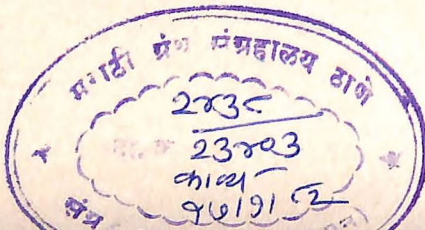 मराठी ग्रंथ संग्रहालय ठाणे
२४३८
२३४०३
काव्य
१७।१।८२